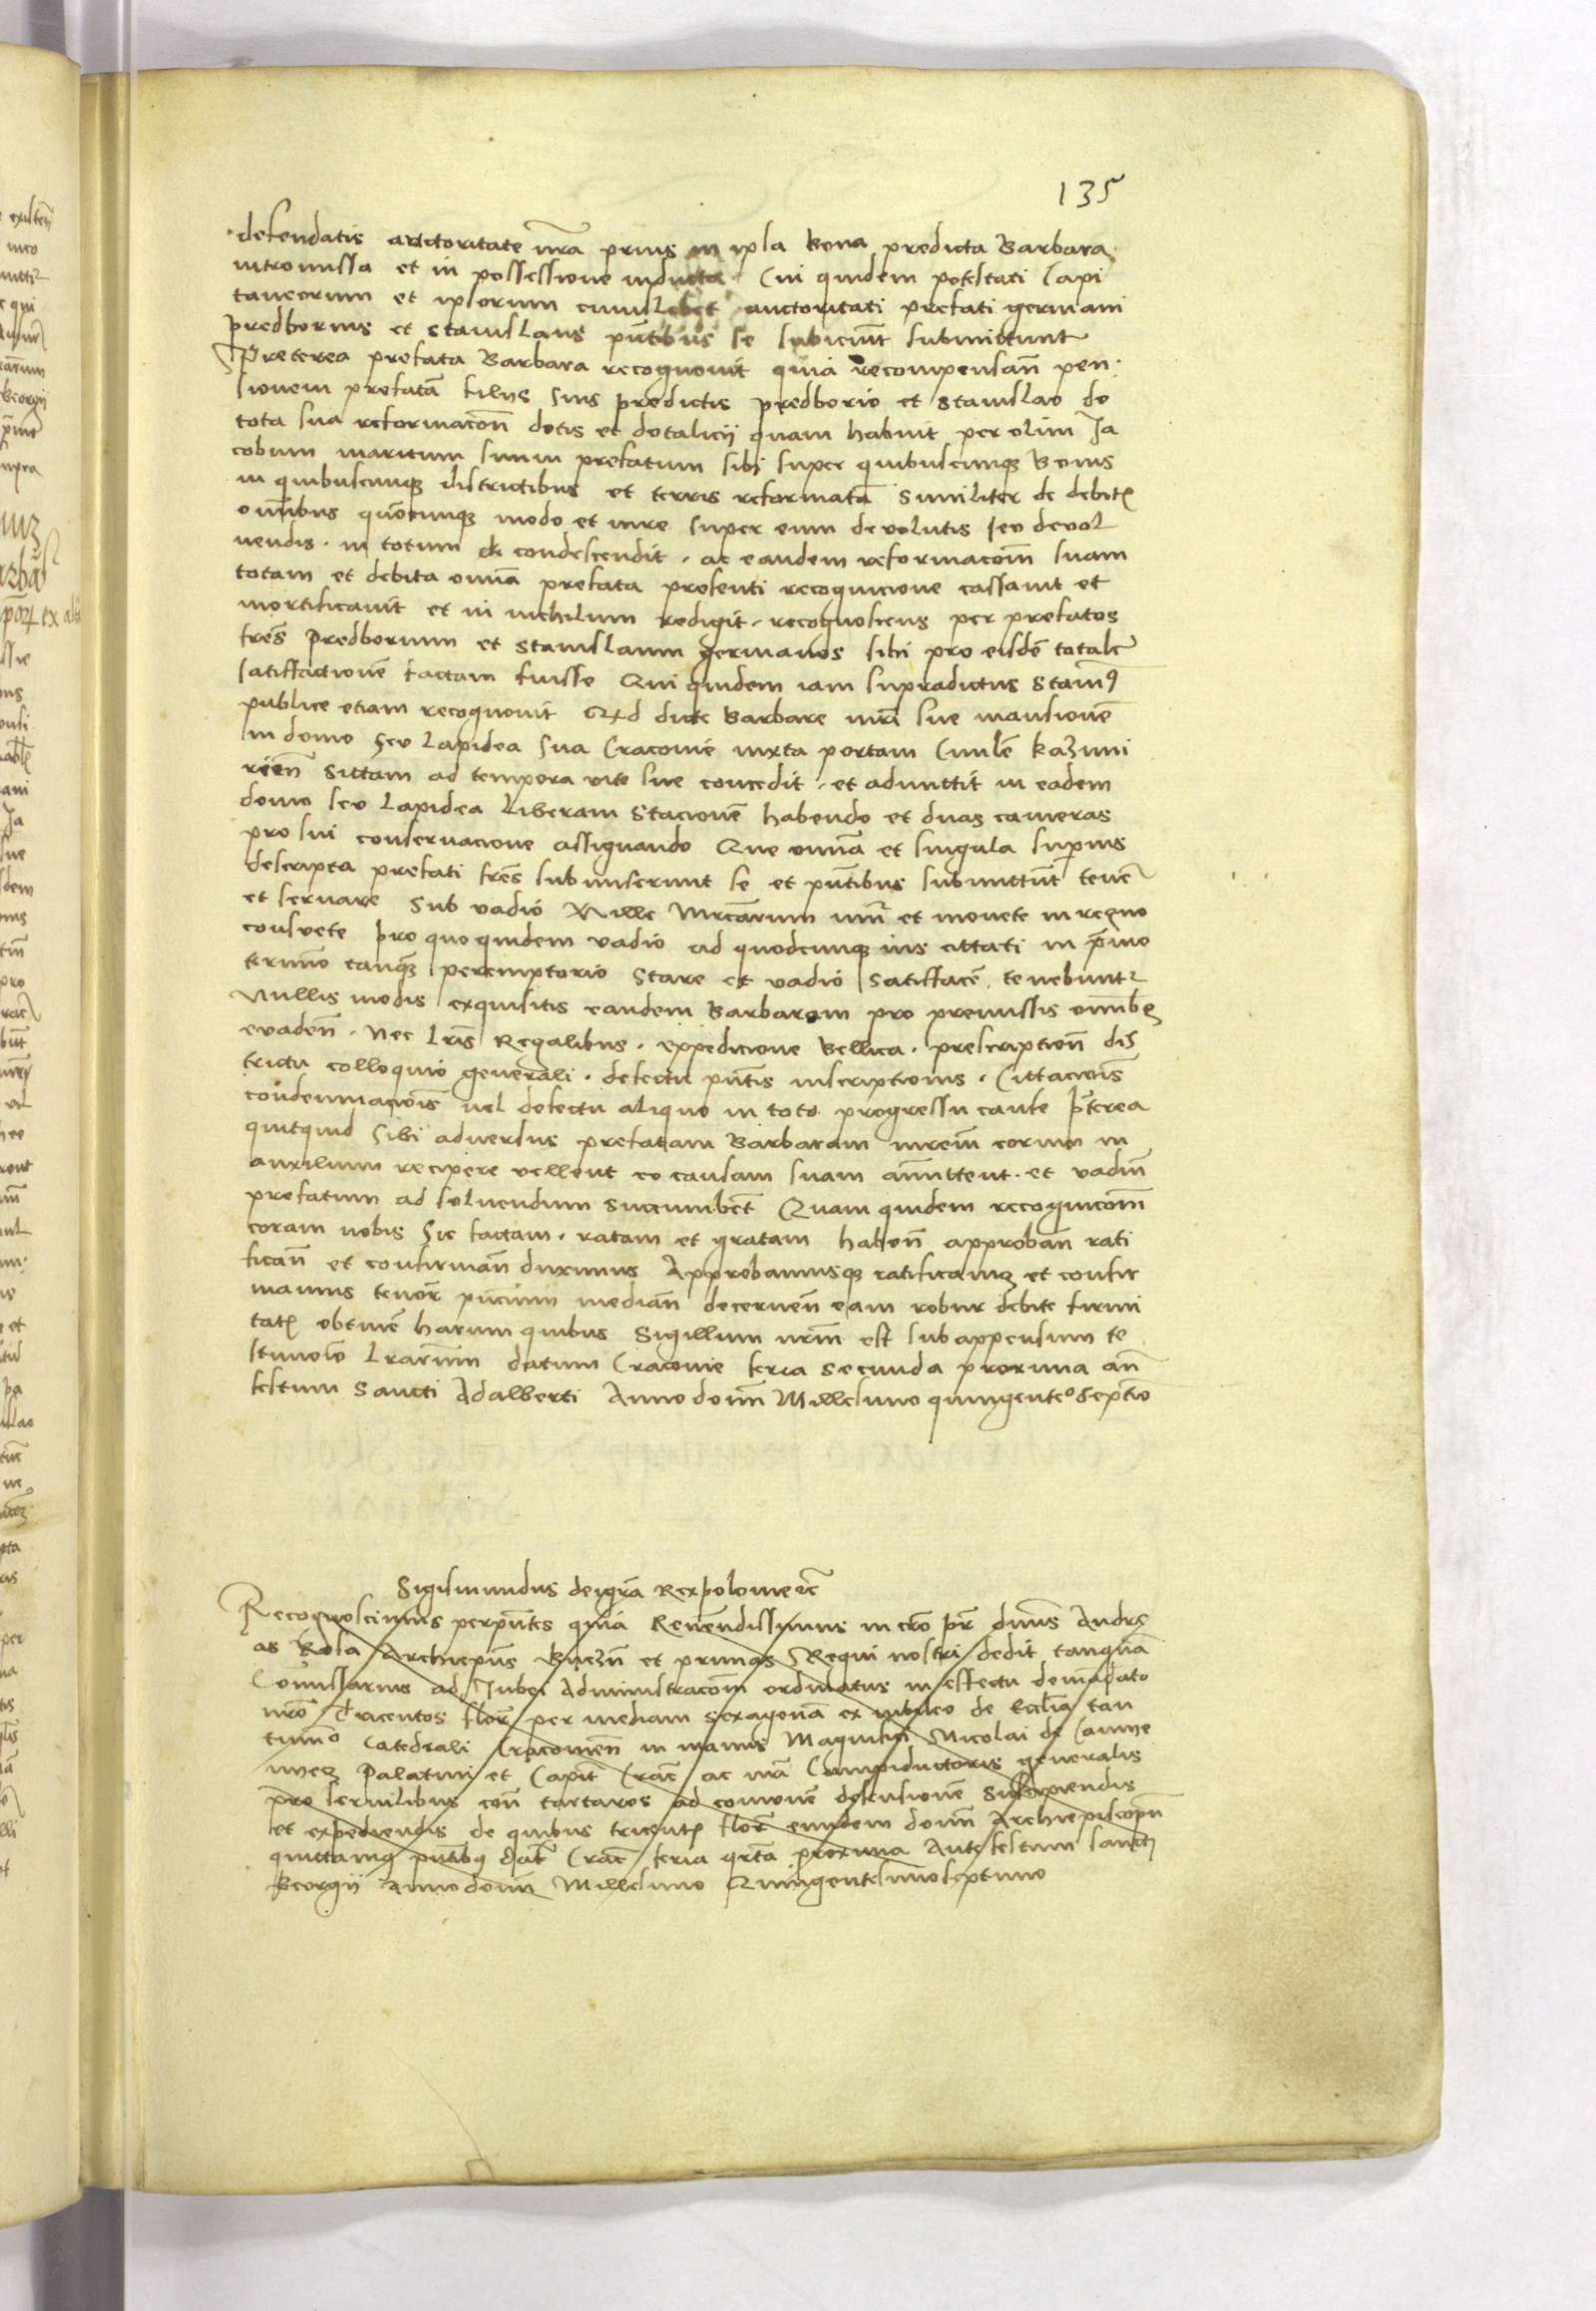 135
defendatis auctoritate nr̄a prius in ipsa bona predicta Barbara
intromissa et in possessione inducta Cui quidem potestati Capi
taneorum et ipsorum cuiuslibet auctoritati prefati germani
predborius et Stanislaus pn̄tibus se subiciunt submittunt
Preterea prefata Barbara recognovit quia recompensan̄ pen
sionem prefatā filijs suis predictis predborio et Stanislao de
tota sua reformacōn dotis et dotalicij quam habuit per olim Ja
cobum maritum suum prefatum sibi super quibuscunq bonis
in quibuscunq districtibus et terris reformatam similiter de debit
omībus quocunq modo et iure super eum devolutis seu devol
vendis in totum de condescendit ac eandem reformacōm suam
totam et debita omīa prefata presenti recognicione cassavit et
mortificavit et in nichilum redigit recognoscens per prefatos
fres predborium et Stanislaum germanos sibi pro eisdē totale
satisfactionē factam fuisse Qui quidem iam supradictus Stanis9
publice etiam recognovit Qd dicte Barbare mr̄i sue mansionē
in domo seu lapidea sua Cracovie iuxta portam Civilē kazimi
rien̄ sittam ad tempora vite sue concedit et admittit in eadem
domo seu lapidea liberam stacionē habendo et duas cameras
pro sui conservacione assignando Que omīa et singula supius
descripta prefati fres submiserunt se et pn̄tibus submittūt tenē
et servare sub vadio Mille Mrcarum nūi et monete in regno
consuete pro quo quidem vadio ad quodcunq ius cittati in p̄mo
termīo tanq̄ peremptorio stare et vadio satisfacē tenebunt
Nullis modis exquisitis eandem Barbaram pro premissis omībs
evaden̄ nec lr̄is Regalibus expedicione bellica prescription̄ dis
trictu colloquio generali defectu pn̄tis inscriptionis Cittacōis
condemnacōis vel defectu aliquo in toto progressu cause p̄terea
quitquid sibi adversus prefatam Barbaram mr̄em eorum in
auxilium recipere vellent eo causam suam amittent et vadiū
prefatum ad solvendum succumbēt Quam quidem recognicōm
coram nobis sic factam ratam et gratam haben̄ approban̄ rati
fican̄ et confirman̄ duximus Approbamusq ratificamq et confir
mamus tenor̄ pn̄cium median̄ decernen̄ eam robur debite firmi
tat obtinē harum quibus Sigillum nr̄m est subappensum te
stimōio lrarum datum Cracovie feria secunda proxima an̄
festum Sancti Adalberti Anno domī Millesimo quingenteo Septīo
Sigismundus dei gra Rex polonie etc
Recognoscimus per pn̄tes quia Reverendissimus in cro pr̄ dn̄us Andre
as Rosa Archiepūs Gnezn̄ et primas Regni nostri dedit tanquā
Comissarius ad Jubei Administracōm ordinatus in effectu de mādato
nro Tricentos flor̄ per mediam sexagenā ex iubileo de Ecclīa tan
tum̄o Catedrali Cracovien̄ in manus Magnifici Nicolai de Camye
nyecz Palatini et Capit Crac̄ ac nr̄i Campiductoris generalis
pro servilibus con̄ tartaros ad comunē defensionē Suscipiendis
et expediendis de quibus tricent flor̄ eundem domī Archiepiscopū
quittamq pn̄tibq dat Crac̄ feria qrta proxima Ante festum sancti
Georgij anno domī Millesimo Quingentesimoseptimo